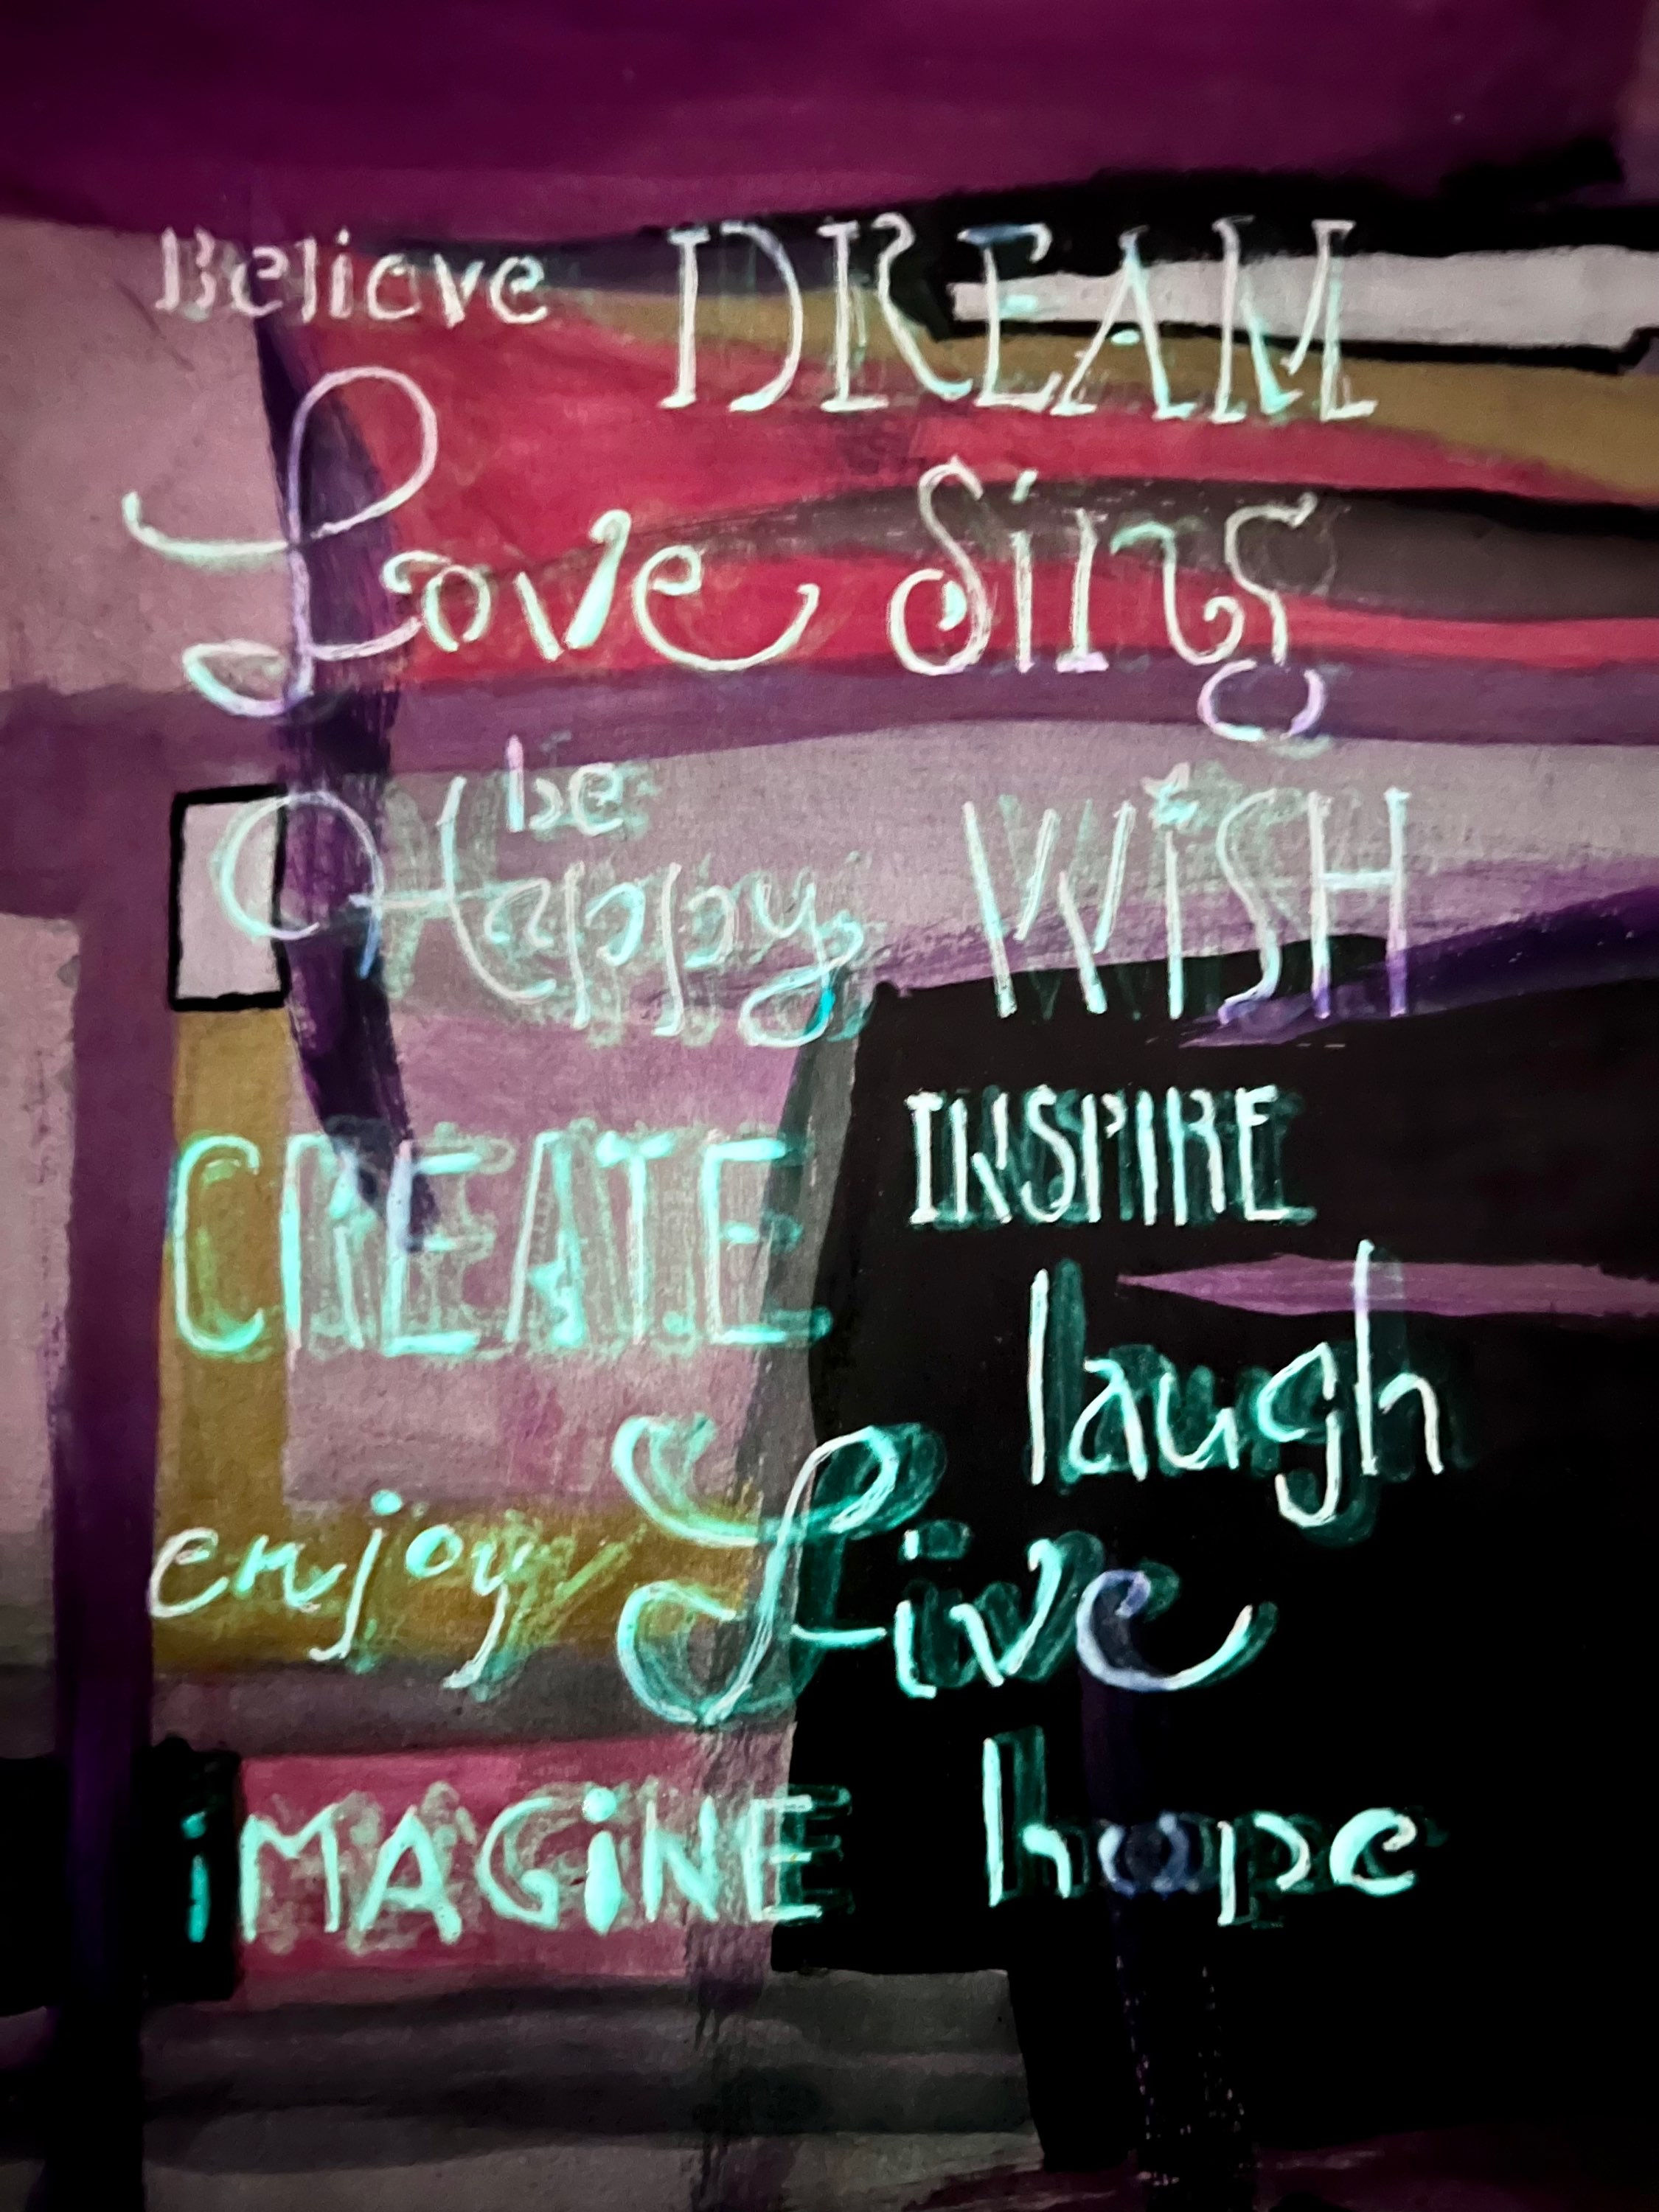 Believe DREAM
Love Sing
be
Happy WiSH
CREATE INSPIRE
laugh
enjoy Live
iMAGiNE hope